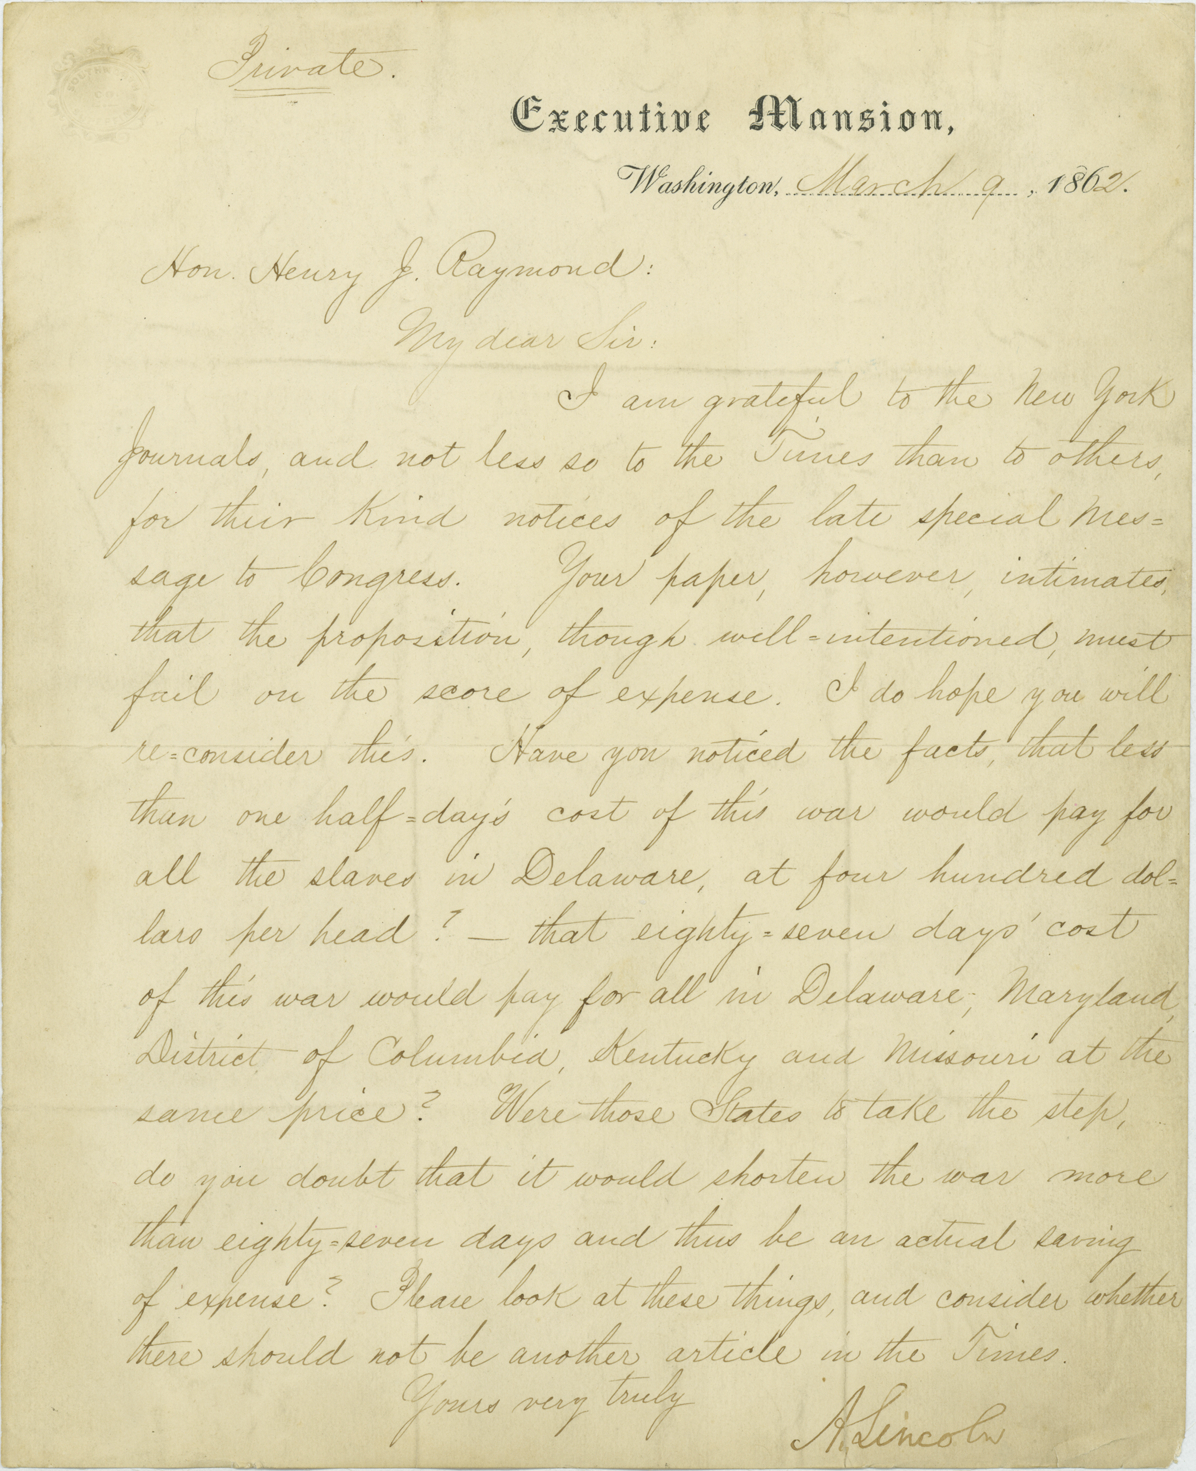 Private.
Executive Mansion,
Washington, March 9, 1862.
Hon. Henry J. Raymond:
My dear Sir:
I am grateful to the New York
Journals, and not less so to the Times than to others,
for their kind notices of the late special Mes=
sage to Congress. Your paper, however, intimates,
that the proposition, though well=intentioned, must
fail on the score of expense. I do hope you will
re=consider this. Have you noticed the facts, that less
than one half=day's cost of this war would pay for
all the slaves in Delaware, at four hundred dol=
lars per head? — that eighty=seven days' cost
of this war would pay for all in Delaware, Maryland,
District of Columbia, Kentucky and Missouri at the
same price? Were those States to take the step,
do you doubt that it would shorten the war more
than eighty=seven days and thus be an actual saving
of expense? Please look at these things, and consider whether
there should not be another article in the Times.
Yours very truly
A. Lincoln